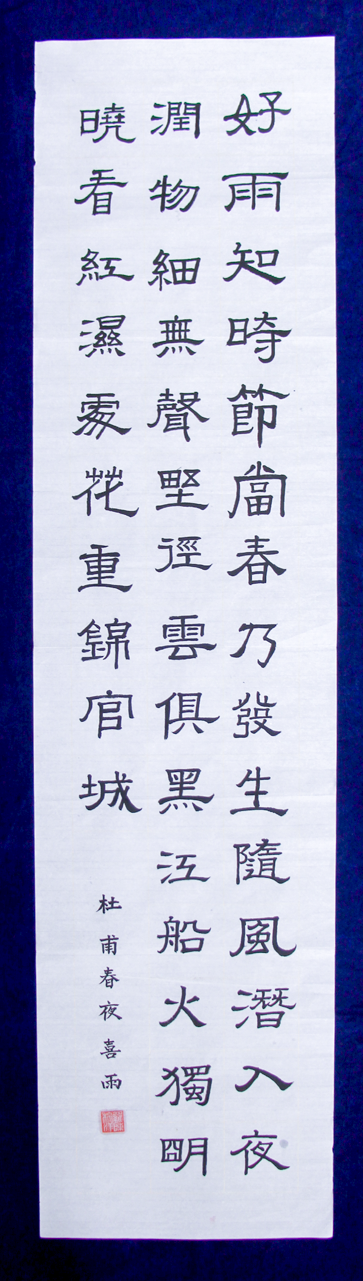 好雨知時節當春乃發生隨風潛入夜
潤物細無聲野徑雲俱黑江船火獨明
曉看紅濕處花重錦官城
杜甫春夜喜雨